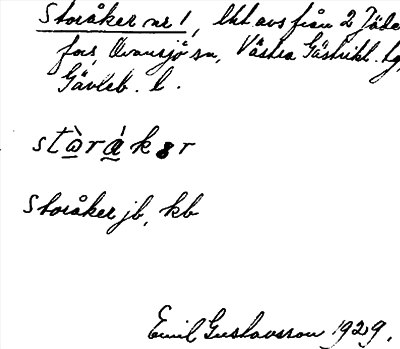 Storåker nr 1, lht avs från 2 Jäde
fors, Ovansjö sn, Västra Gästrikl. tg,
Gävleb. l.
stò̲rá̲kər
Storåker jb, kb
Emil Gustavsson 1929.